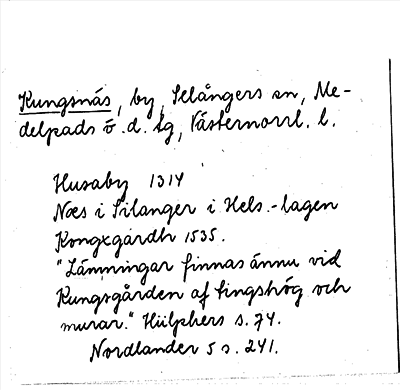 Kungsnäs, by, Selångers sn, Me-
delpads ö. d. tg, Västernorrl. l.
Husaby 1314
Næs i Silanger i Hels.-lagen
Kongxgårdh 1535.
"Lämningar finnas ännu vid
Kungsgården af tingshög och
murar." Hülphers s. 74.
Nordlander 5 s. 241.